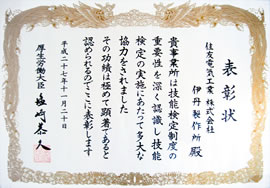 表彰状
住友電気工業 株式会社
伊丹製作所 殿
貴事業所は技能検定制度の
重要性を深く認識し技能
検定の実施にあたって多大な
協力をされました
その功績は極めて顕著であると
認められるのでここに表彰します
平成二十七年十一月二十日
厚生労働大臣 塩崎恭久